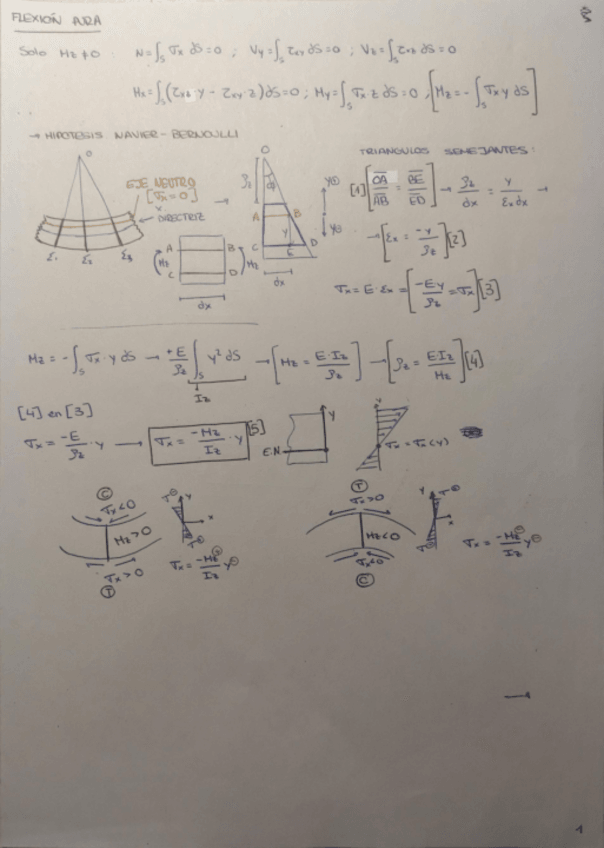 FLEXIÓN PURA
Solo Mz≠0 : N=∫s σx dS=0 ; Vy=∫s τxy dS=0 ; Vz=∫s τxz dS=0
Mx=∫s(τxz·y - τxy·z)dS=0 ; My=∫s σx z dS=0 ; [Mz=-∫s σx y dS]
→ HIPOTESIS NAVIER-BERNOULLI
TRIANGULOS SEMEJANTES:
O
EJE NEUTRO
[σx=0]
DIRECTRIZ
ε1 ε2 ε3
A B
C D
Mz Mz
dx
O
ρz
A B
y
C E D
dx
y⊕
y⊖
[1] [OA/AB = BE/ED] → ρz/dx = y/εx dx →
→ [εx = -y/ρz] [2]
σx = E·εx = [-Ey/ρz = σx] [3]
Mz = -∫s σx·y dS → +E/ρz ∫s y² dS → [Mz = E·Iz/ρz] → [ρz = E·Iz/Mz] [4]
Iz
[4] en [3]
σx = -E/ρz · y → σx = -Mz/Iz · y [5]
E.N.
y
σx = σx(y)
C
σx<0
Mz>0
σx>0
T
y
x
σx = -Mz⊕/Iz y⊖
T
σx>0
Mz<0
σx<0
C
y
x
σx = -Mz⊖/Iz y⊖
→
1